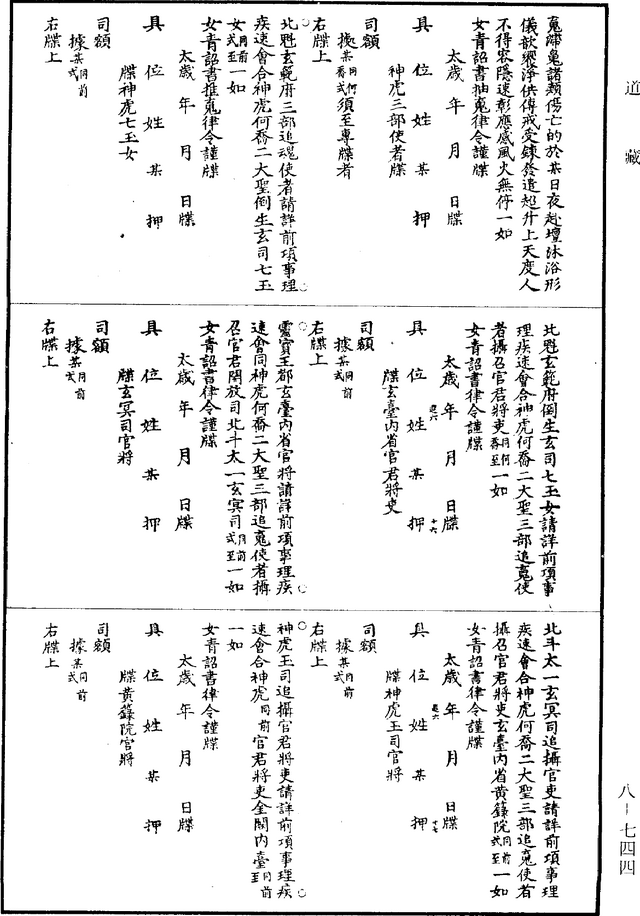 道藏
魂歸龜諸類傷亡的於某日夜赴壇沐浴形
儀歆饗淨供傳戒受鍊發遣超升上天度人
不得容隱速彰應感風火無停一如
女青詔書抽魂律令謹牒
太歲年月日牒
具位姓某押
神虎三部使者牒
司額
據某同何喬式須至專牒者
右牒上
北魁玄範府三部追魂使者請詳前項事理
疾速會合神虎何喬二大聖倒生玄司七玉
女同前式至一如
女青詔書推魂律令謹牒
太歲年月日牒
具位姓某押
牒神虎七玉女
司額
據某同前式
右牒上
北魁玄範府倒生玄司七玉女請詳前項事
理疾速會合神虎何喬二大聖三部追魂使
者攝召官君將吏同何喬至一如
女青詔書律令謹牒
太歲年月日牒
具位姓某押
十六
牒玄臺內省官君將吏
司額
據某同前式
右牒上
靈寶玉都玄臺內省官將請詳前項事理疾
速會同神虎何喬二大聖三部追魂使者攝
召官君開放司北斗太一玄冥司同前式至一如
女青詔書律令謹牒
太歲年月日牒
具位姓某押
牒玄冥司官將
司額
據某同前式
右牒上
北斗太一玄冥司追攝官吏請詳前項事理
疾速會合神虎何喬二大聖三部追魂使者
攝召官君將吏玄臺內省黃籙院同前式至一如
女青詔書律令謹牒
太歲年月日牒
具位姓某押
十七
牒神虎玉司官將
司額
據某同前式
右牒上
神虎玉司追攝官君將吏請詳前項事理疾
速會合神虎同前官君將吏金闕內臺同前至
一如
女青詔書律令謹牒
太歲年月日牒
具位姓某押
牒黃籙院官將
司額
據某同前式
右牒上
八–七四四